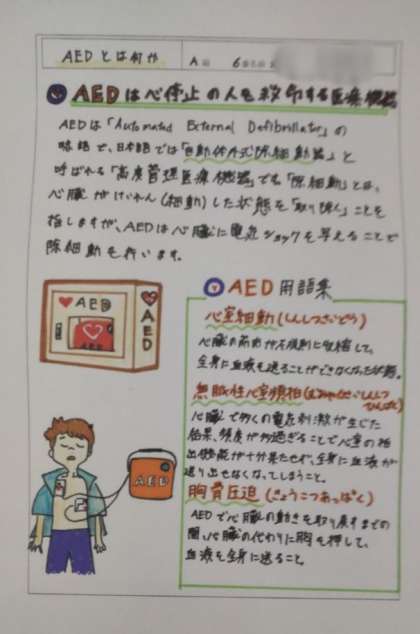 AEDとは何か A組 6番名前
AEDは心停止の人を救命する医療機器
AEDは「Automated External Defibrillator」の
略語で、日本語では「自動体外式除細動器」と
呼ばれる「高度管理医療機器」です「除細動」とは、
心臓がけいれん(細動)した状態を「取り除く」ことを
指しますが、AEDは心臓に電気ショックを与えることで
除細動を行います。
AED
AED
AED
AED
AED用語集
心室細動(しんしつさいどう)
心臓の筋肉が不規則に収縮して、
全身に血液を送ることができなくなった状態。
無脈性心室頻拍(むみゃくせいしんしつ
ひんぱく)
心臓で多くの電気刺激が生じた
結果、頻度が多過ぎることで心室の拍
出機能が十分果たせず、全身に血液が
送り出せなくなってしまうこと。
胸骨圧迫(きょうこつあっぱく)
AEDで心臓の動きを取り戻すまでの
間、心臓の代わりに胸を押して、
血液を全身に送ること。